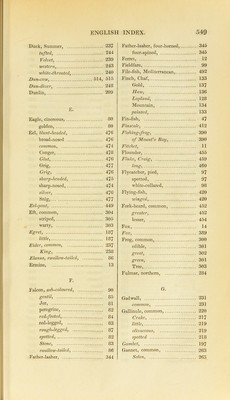 ENGLISH INDEX. 549
Duck, Summer, 237
tufted, 244
Velvet, 239
western, 243
white-throated, 240
Dun-cow, 314, 315
Dun-diver, 248
Dunlin, 209
E.
Eagle, cinereous, 69
golden, 68
Eel, blunt-headed, 476
broad-nosed 476
common, 474
Conger, 478
Glut, 476
Grig, 477
Grig, 476
sharp-headed, 475
sharp-nosed, 474
silver, 476
Snig, 477
Eel-pout, 449
Eft, common, 304
striped, 305
warty, 303
Egret, 187
little, 187
Eider, common, 237
King, 238
Elanus, swallow-tailed, 86
Ermine, 13
F.
Falcon, ash-coloured, 90
gentil, 85
Jer, 81
peregrine, 82
red-footed, 84
red-legged, 83
rough-legged, 87
spotted, 82
Stone, 83
swallow-tailed, 86
Father-lasher, 344
Father-lasher, four-horned, 345
four-spined, 345
Ferret, 12
Fieldfare, 99
File-fish, Mediterranean, 492
Finch, Chaf, 133
Gold, 137
Haw, 136
Lapland, 128
Mountain, 134
painted, 133
Fin-fish, 47
Finscale, 412
Fishing-frog, 390
of Mount's Bay, 390
Flitcher, 11
Flounder, 455
Fluke, Craig, 459
long, 460
Flycatcher, pied, 97
spotted, 97
white-collared, 98
Flying-fish, 420
winged, 420
Fork-beard, common, 452
greater, 452
lesser, 454
Fox, 14
Fox, 369
Frog, common, 300
edible, 301
great, 302
green, 301
Tree, 303
Fulmar, northern, 284
G.
Gadwall, 231
common, 231
Gallinule, common, 220
Crake, 217
little, 219
olivaceous, 219
spotted 218
Gambet, 197
Gannet, common, 263
Solan, 263